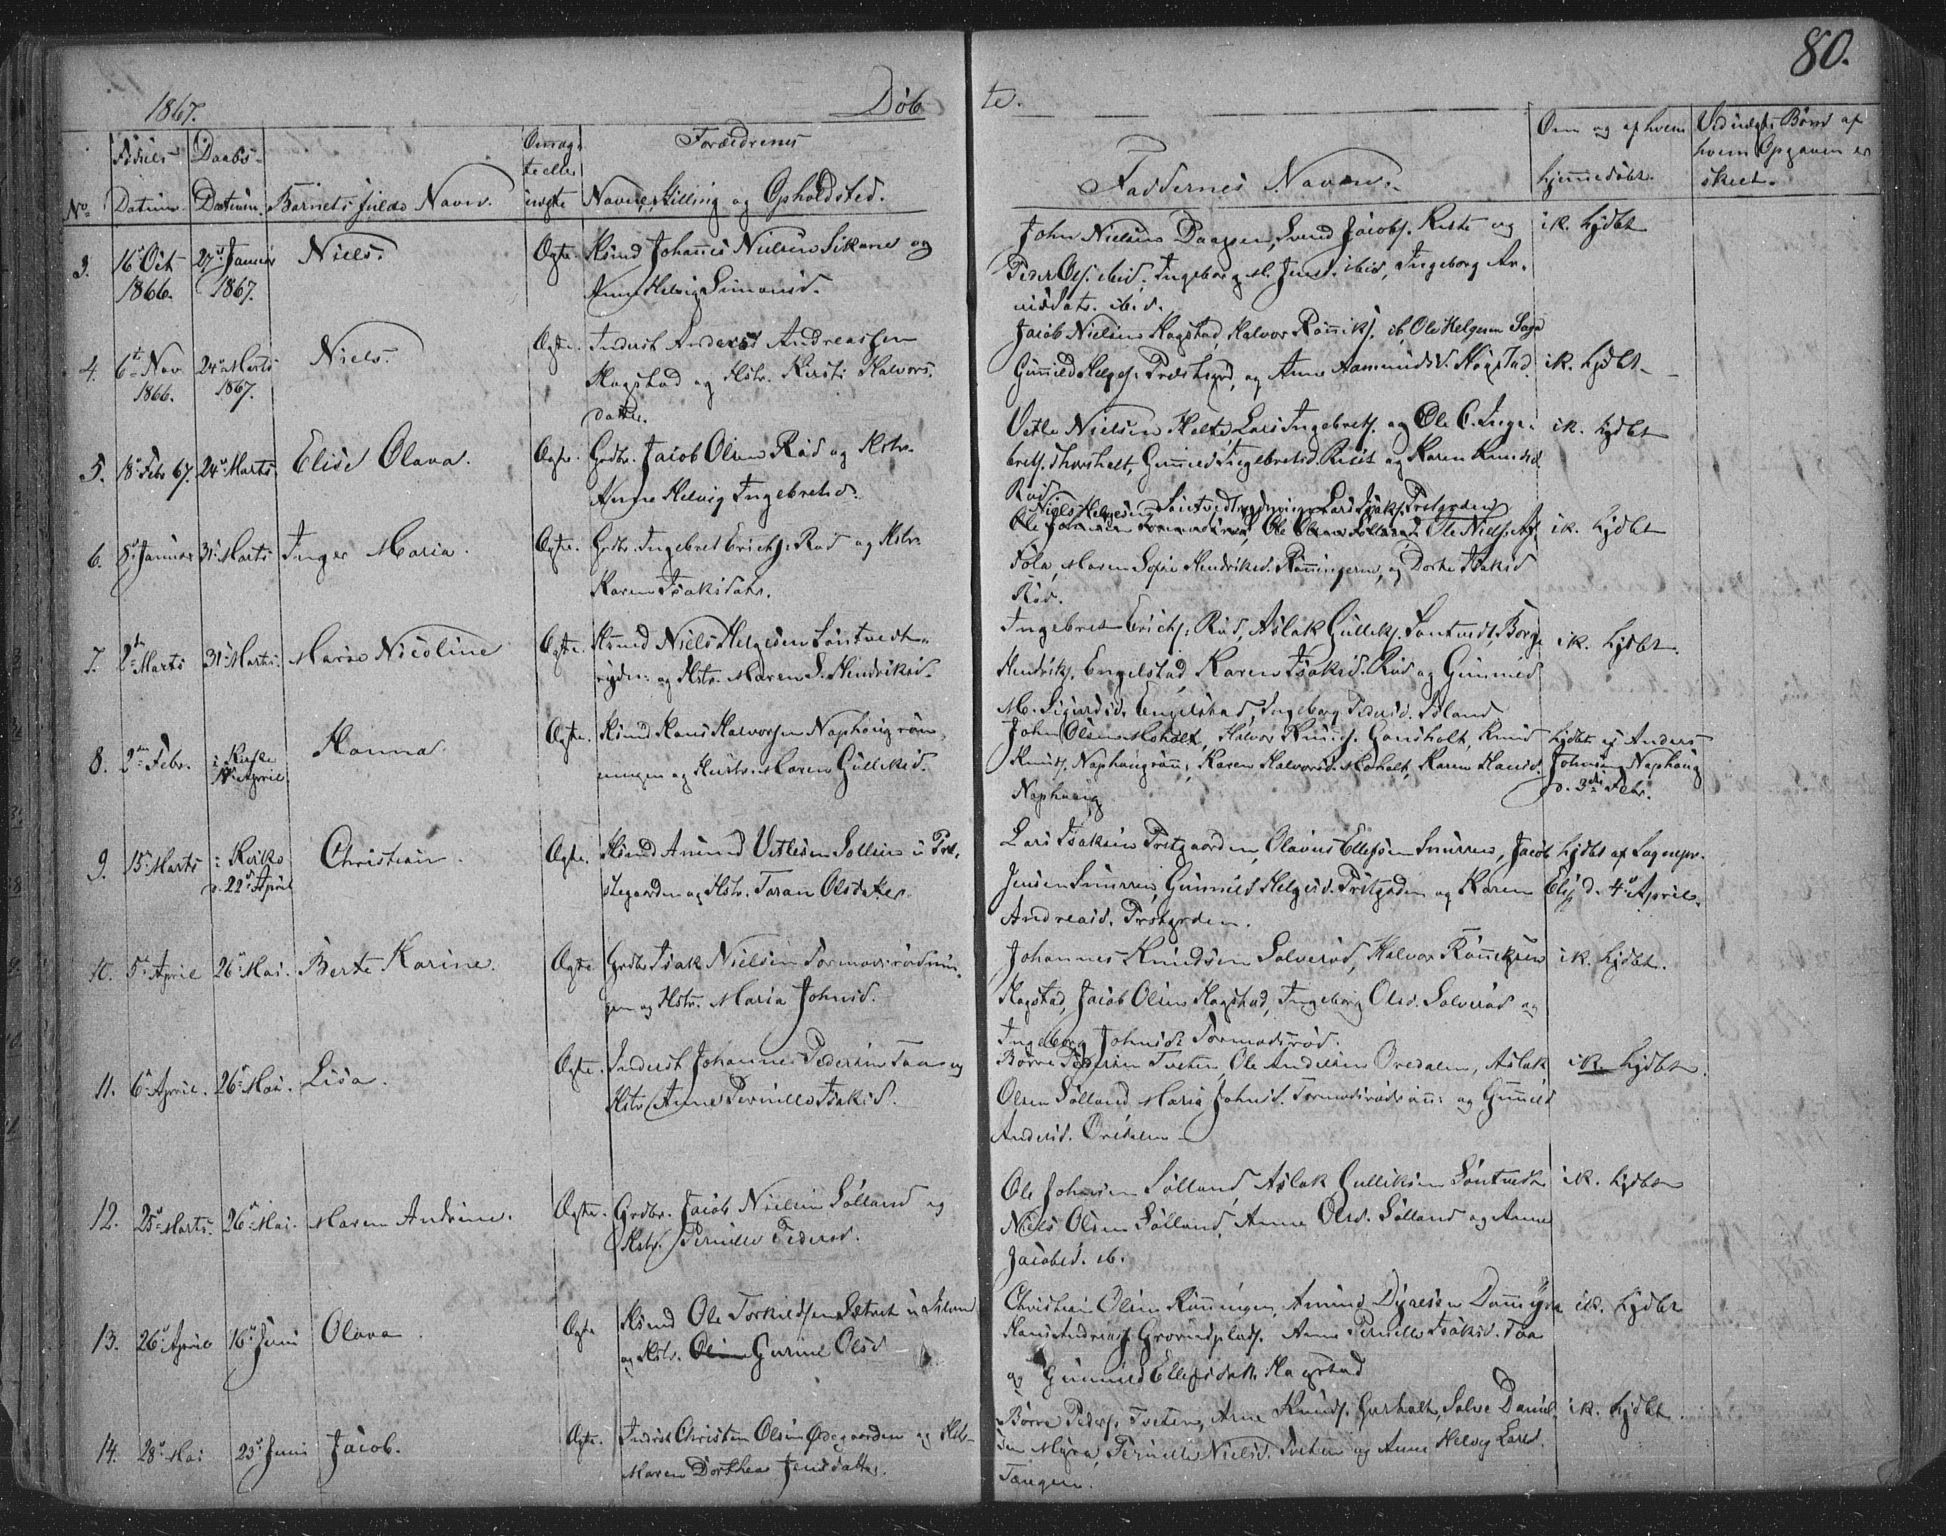 80.
1867.
Døb-
te.
No.
Fødsels-
Datum
Daabs-
Datum.
Barnets fulde Navn.
Om æg-
te eller
uægte
Forældrenes
Navne, Stilling og Opholdsted.
Faddernes Navne.
Om og af hvem
hjemmedøbt.
Ved uægte Børn af
hvem Opgaven er
skeet.
3.
16 Oct
1866.
27 Januar
1867.
Niels.
Ægte.
Hsmd Johannes Nielsen og
Anne Helvig Simonsd.
John Nielsen Svend Jacobs. og
Peder Ols. ibid, Ingeborg M. Jens. ibid, Ingeborg Ar-
vidsdatr. ibid.
ik. hjdbt
4.
6 Nov
1866.
24 Marts
1867.
Niels.
Ægte.
Inderst Anders Andreassen
Hagstad og Hstr. Kirsti Halvors-
datter.
Jacob Nielsen Hagstad, Halvor ib, Ole Helgesen
Gunnild Helges. og Anne Aamundsd. Hagstad
ik. hjdbt.
5.
18 Febr 67.
24 Marts.
Elise Olava.
Ægte.
Grdbr. Jacob Olsen Rød og Hstr.
Anne Helvig Ingebretsd.
Vetle Nielsen Holte Lars Ingebrets. og Ole C. Inge-
brets. Gunnild Ingebretsd. og Karen Knudsd.
Rød
ik. hjdbt
6.
8 Januar
31 Marts
Inger Maria.
Ægte.
Grdbr. Ingebret Erichs. Rød og Hstr.
Karen Isaksdatr.
Niels Helgesen Lars Isaks. Prestgarden
Ole Niels.
Maren Sofie Hendriksd. Rønningen, og Dorte Isaksd
Rød.
ik. hjdbt
7.
2 Marts
31 Marts.
Maren Nicoline
Ægte.
Hsmd Niels Helgesen Søntvedt-
og Hstr. Maren S. Hendriksd.
Ingebret Erichs. Rød, Aslak Gulliks. Søntvedt, Børge
Hendriks. Engelstad, Karen Isaksd. Rød og Gunnild
M. Sigurdsd. Engelstad, Ingeborg Pedersd.
ik. hjdbt.
8.
2 Febr.
i Kirke
April
Hanna.
Ægte.
Hsmd Hans Halvorsen Naphougrøn-
ningen og Hustr. Maren Gulliksd.
John Olsen Moholt, Halvor Knuds. Knud
Knuds. Naphougrønn, Karen Halvorsd. Moholt, Karen Hansd.
Naphoug
hjdbt af Anders
Johnsen Naphoug
d. 3 Febr.
9.
15 Marts
i Kirke
d. 22 April
Christian.
Ægte.
Hsmd Amund Vetlesen Sollien u Pre-
stegaarden og Hstr. Taran Olsdatter.
Lars Isaksen Prstgaarden, Olavus Ellefsen Snurren, Jacob
Jensen Snurren, Gunnild Helgesd. Prstgaden og Karen
Andreasd. Prstgrden.
hjdbt af Sognepr.
d. 4 April.
10.
5 April
26 Mai.
Berte Karine.
Ægte
Grdbr Isak Nielsen Tormodsrødnin-
gen og Hstr. Maria Johnsd.
Johannes Knudsen Solverød, Halvor
Hagstad, Jacob Olsen Hagstad, Ingeborg Olsd. Solverød og
Ingeborg Johnsd. Tormodsrød.
ik. hjdbt.
11.
6 April.
26 Mai.
Lisa.
Ægte.
Inderst Johannes Pedersen og
Hstr Anne Pernille Isaksd.
Børre Pedersen Tveten, Ole Andersen Oredalen, Aslak
Olsen Sølland Maria Johnsd. og Gunnild
Andersd. Oredalen
ik. hjdbt.
12.
25 Marts.
26 Mai.
Maren Andrine.
Ægte.
Grdbr. Jacob Nielsen Sølland og
Hstr. Pernille Pedersd.
Ole Johnsen Sølland, Aslak Gulliksen Søntvedt
Niels Olsen Sølland, Anne Olsd. Sølland og Anne
Jacobsd. ib.
ik. hjdbt
13.
26 April
16 Juni
Olava.
Ægte
Hsmd Ole Torkildsen
og Hstr. Gurine Olsd
Christian Olsen Rønningen, Amund Dyresen
Hans Andreas. Anne Pernille Isaksd.
og Gunnild Ellefsdatr. Hagstad
ik. hjdbt
14.
28 Mai
23 Juni
Jacob.
Ægte.
Inderst Christen Olsen Ødegaarden og Hstr.
Maren Dorthea Jensdatter.
Børre Peders. Tveten, Arne Knuds. Solve Daniel-
sen Myra, Pernille Nielsd. Tveten og Anne Helvig Larsd.
Tangen.
ik. hjdbt.